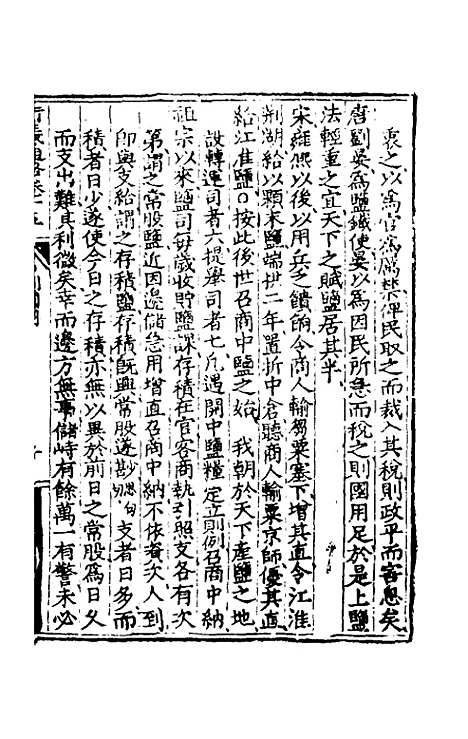 裹之以為官為厲禁俾民取之而裁入其稅則政平而害息矣
唐劉晏為鹽鐵使晏以為因民所急而稅之則國用足於是上鹽
法輕重之宜天下之賦鹽居其半
宋雍熙以後以用兵乏饋餉令商人輸芻粟塞下增其直令江淮
荊湖給以顆末鹽端拱二年置折中倉聽商人輸粟京師優其直
給江淮鹽○按此後世召商中鹽之始 我朝於天下產鹽之地
設轉運司者六提舉司者七凡遇開中鹽糧定立則例召商中納
祖宗以來鹽司每歲收貯鹽課存積在官客商執引照支各有次
第謂之常股鹽近因邊儲急用增直召商中納不依資次人到
即與支給謂之存積鹽存積既興常股遂 支者日多而
積者日少遂使今日之存積亦無以異於前日之常股為日久
而支出難其利微矣幸而邊方無事儲峙有餘萬一有警未必